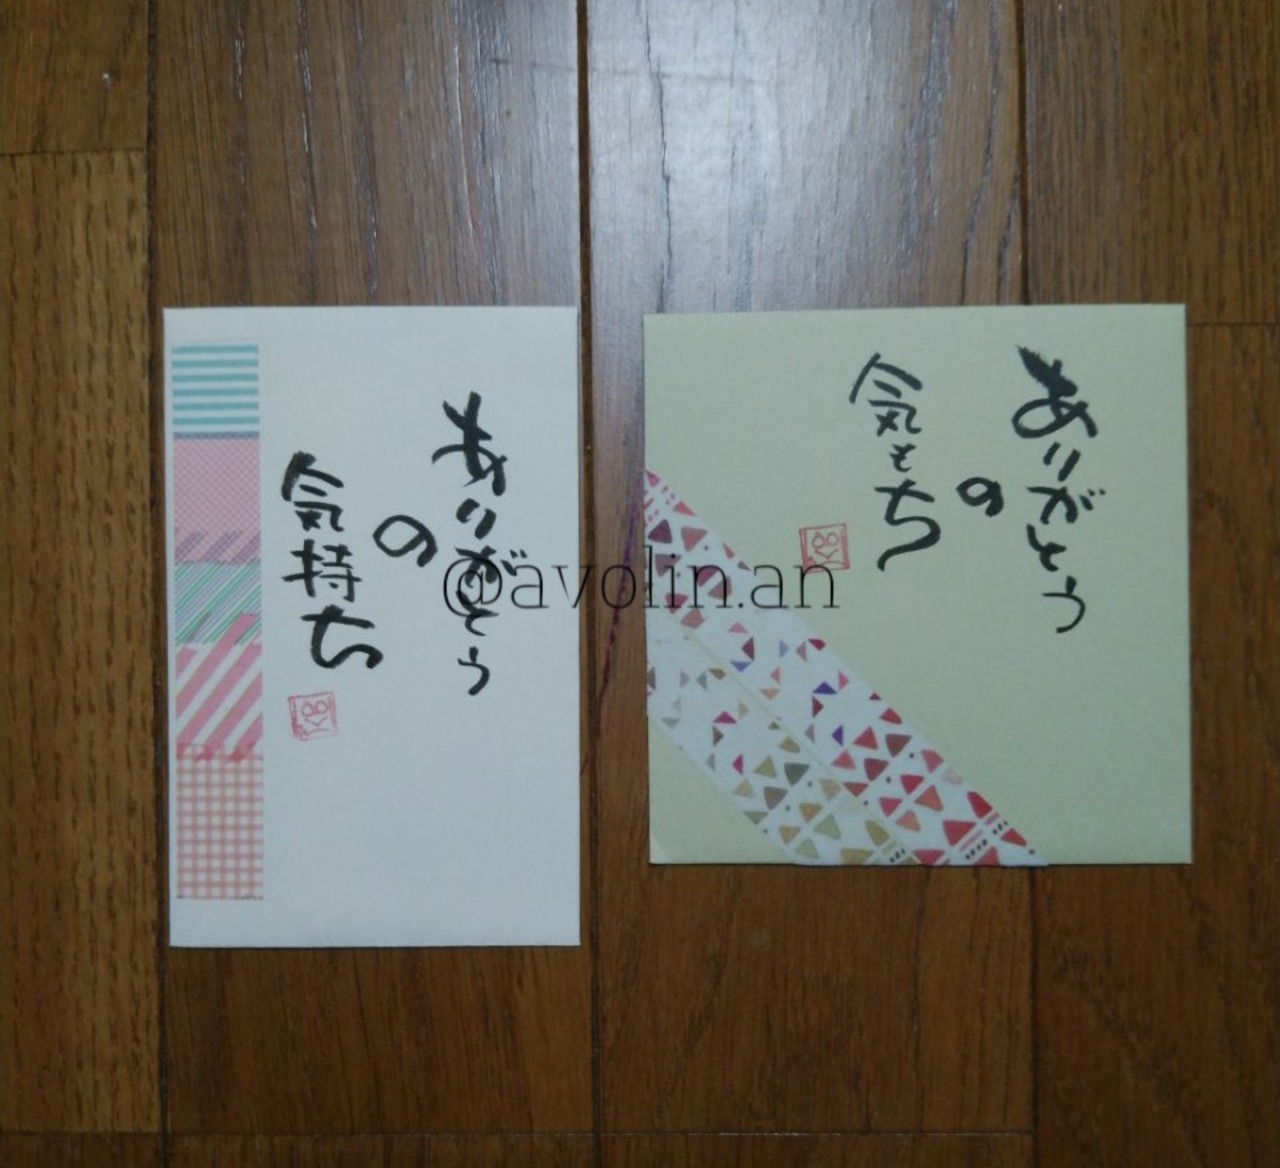 ありがとう
の
気持ち
ありがとう
の
気もち
@avolin.an